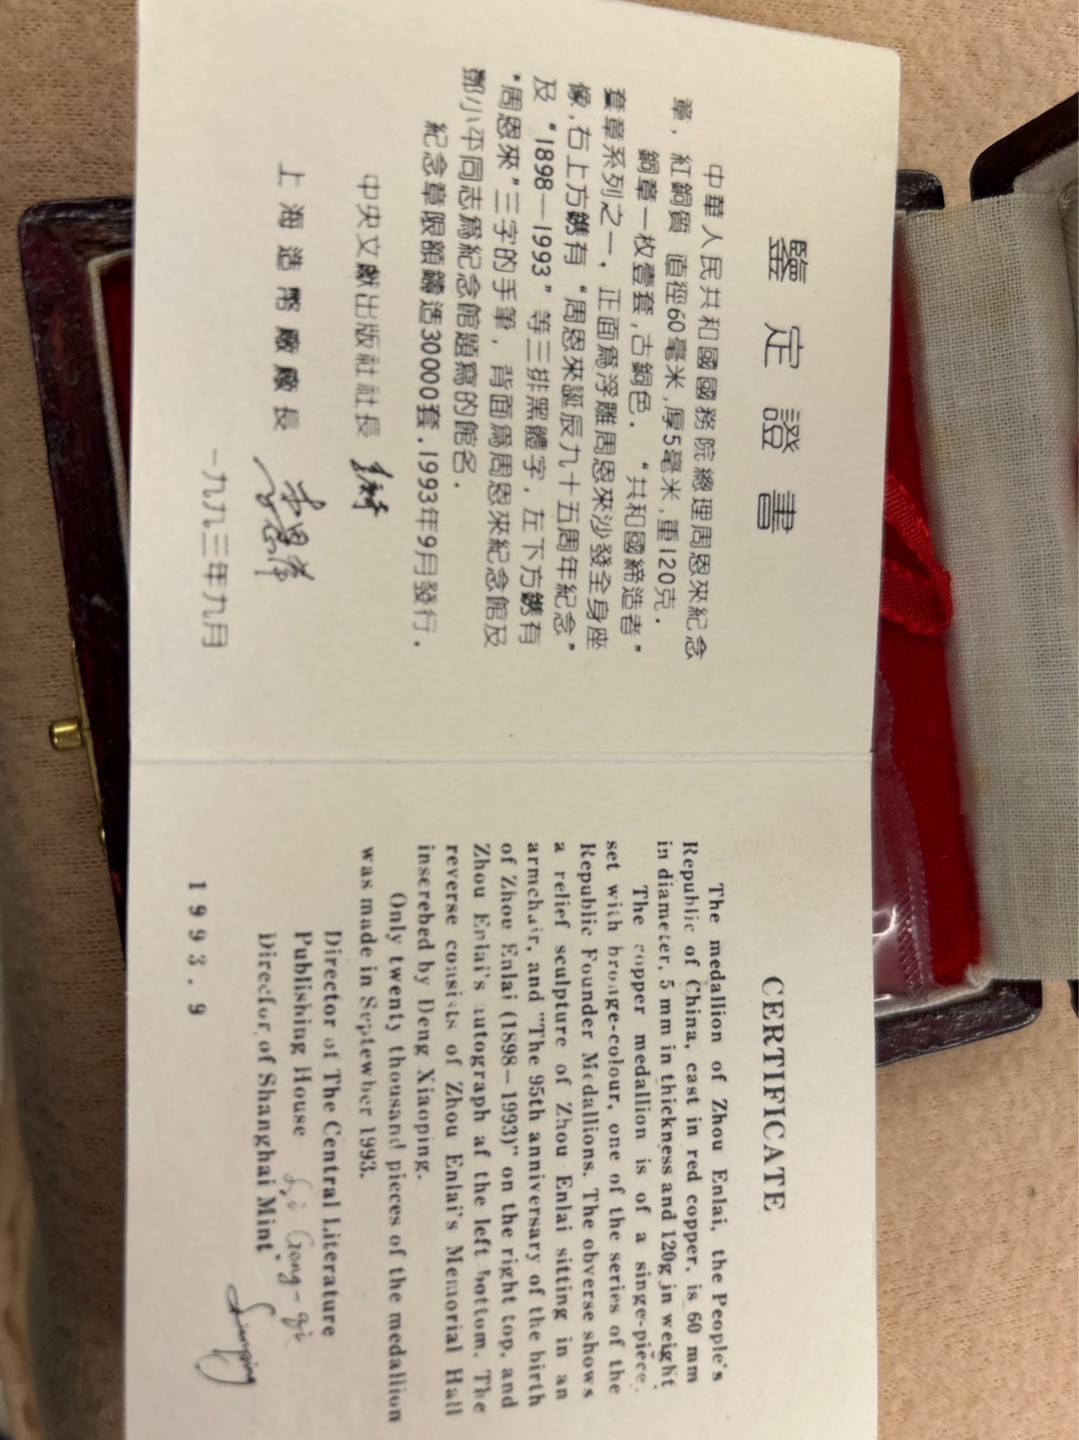 鑒定證書
中華人民共和國國務院總理周恩來紀念
章，紅銅質 直徑60毫米，厚5毫米，重120克．
銅章一枚壹套，古銅色．“共和國締造者”
套章系列之一，正面爲浮雕周恩來沙發全身座
像，右上方鐫有“周恩來誕辰九十五周年紀念”
及“1898—1993”等三排黑體字，左下方鐫有
“周恩來”三字的手筆，背面爲周恩來紀念館及
鄧小平同志爲紀念館題寫的館名．
紀念章限額鑄造30000套．1993年9月發行．
中央文獻出版社社長
上海造幣廠廠長
一九九三年九月
CERTIFICATE
The medallion of Zhou Enlai, the People's
Republic of China, cast in red copper, is 60 mm
in diameter, 5 mm in thickness and 120g in weight
The copper medallion is of a singe-piece,
set with broage-colour, one of the series of the
Republic Founder Medallions. The obverse shows
a relief sculpture of Zhou Enlai sitting in an
armchair, and "The 95th anniversary of the birth
of Zhou Enlai (1898—1993)" on the right top, and
Zhou Enlai's autograph af the left bottom. The
reverse coasists of Zhou Enlai's Memorial Hall
inscrebed by Deng Xiaoping.
Only twenty thousand pieces of the medallion
was made in Septewber 1993.
Director of The Central Literature
Publishing House
Director of Shanghai Mint
1993.9